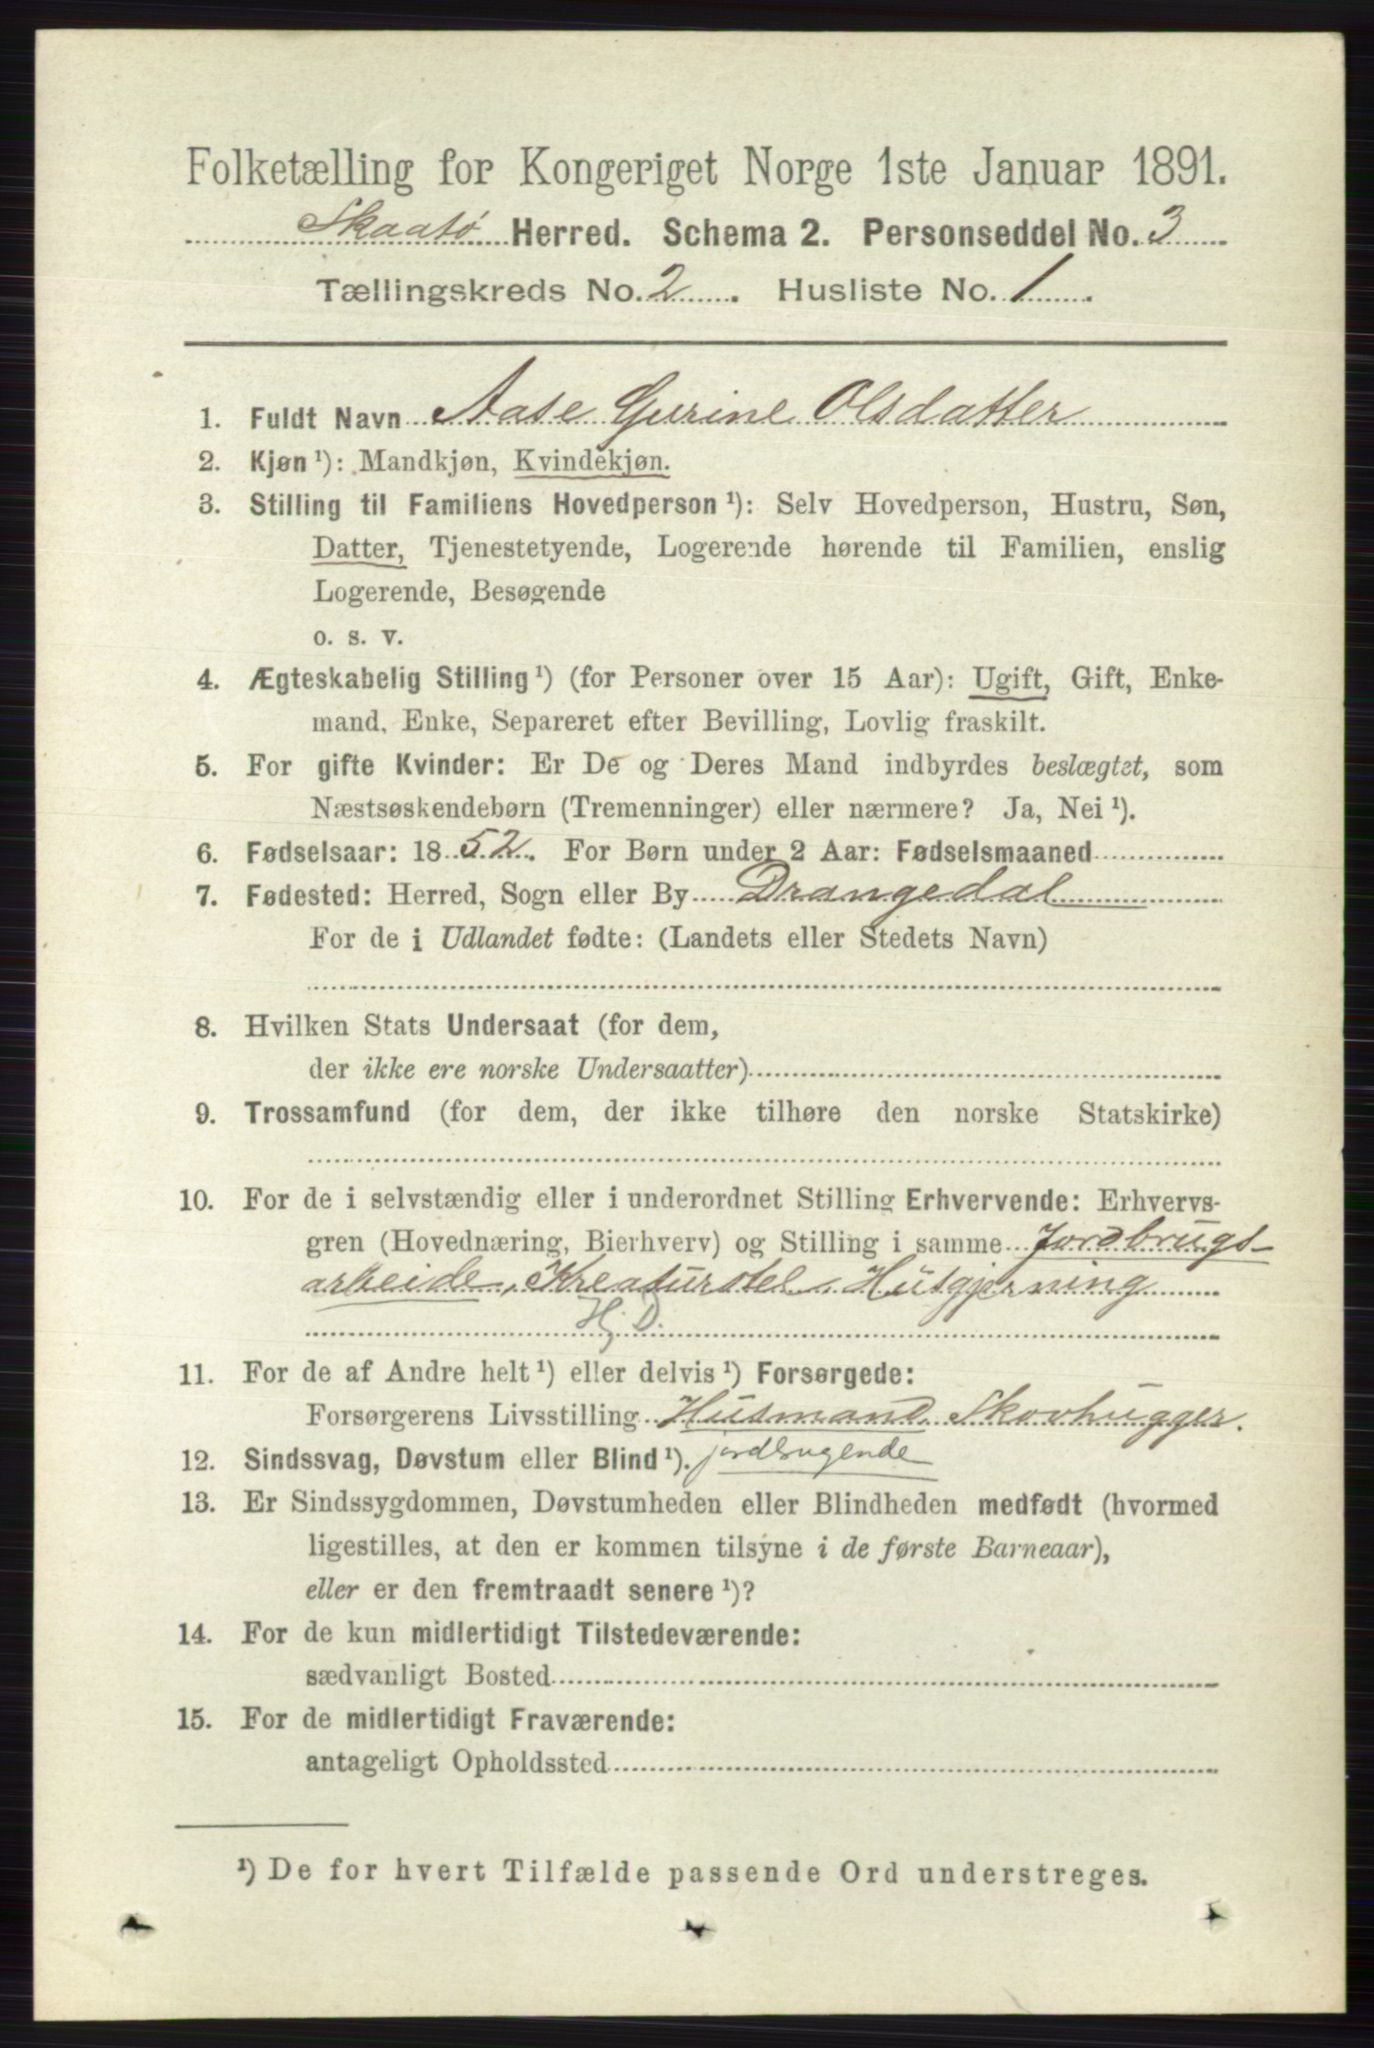 Folketælling for Kongeriget Norge 1ste Januar 1891.
Skaatø Herred. Schema 2. Personseddel No. 3
Tællingskreds No. 2. Husliste No. 1.
1. Fuldt Navn Aase Gurine Olsdatter
2. Kjøn ¹): Mandkjøn, Kvindekjøn.
3. Stilling til Familiens Hovedperson ¹): Selv Hovedperson, Hustru, Søn,
Datter, Tjenestetyende, Logerende hørende til Familien, enslig
Logerende, Besøgende
o. s. v.
4. Ægteskabelig Stilling ¹) (for Personer over 15 Aar): Ugift, Gift, Enke-
mand, Enke, Separeret efter Bevilling, Lovlig fraskilt.
5. For gifte Kvinder: Er De og Deres Mand indbyrdes beslægtet, som
Næstsøskendebørn (Tremenninger) eller nærmere? Ja, Nei ¹).
6. Fødselsaar: 1852. For Børn under 2 Aar: Fødselsmaaned
7. Fødested: Herred, Sogn eller By Drangedal
For de i Udlandet fødte: (Landets eller Stedets Navn)
8. Hvilken Stats Undersaat (for dem,
der ikke ere norske Undersaatter)
9. Trossamfund (for dem, der ikke tilhøre den norske Statskirke)
10. For de i selvstændig eller i underordnet Stilling Erhvervende: Erhvervs-
gren (Hovednæring, Bierhverv) og Stilling i samme Jordbrugs-
arbeide, Kreaturstel, Husgjerning
Hj. D.
11. For de af Andre helt ¹) eller delvis ¹) Forsørgede:
Forsørgerens Livsstilling Husmand, Skovhugger.
12. Sindssvag, Døvstum eller Blind ¹). jordbrugende
13. Er Sindssygdommen, Døvstumheden eller Blindheden medfødt (hvormed
ligestilles, at den er kommen tilsyne i de første Barneaar),
eller er den fremtraadt senere ¹)?
14. For de kun midlertidigt Tilstedeværende:
sædvanligt Bosted
15. For de midlertidigt Fraværende:
antageligt Opholdssted
¹) De for hvert Tilfælde passende Ord understreges.